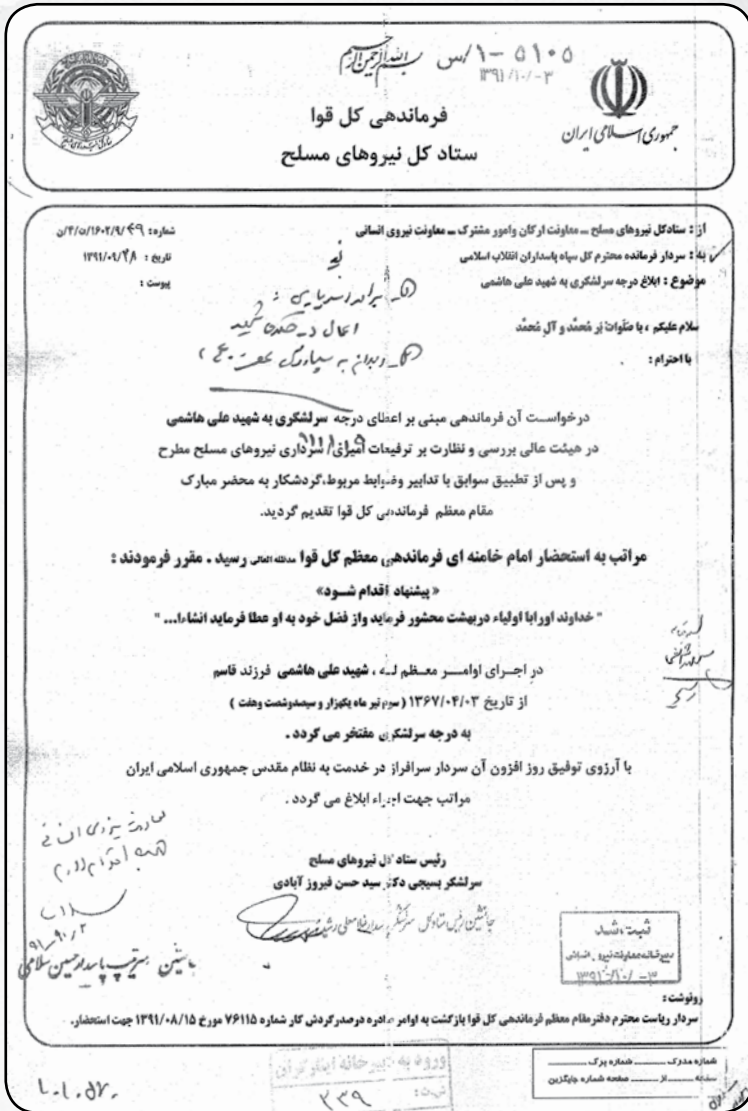 بسم الله الرحمن الرحیم
۵۱۰۵-۱/س
۱۳۹۱/۱۰/-۳
جمهوری اسلامی ایران
فرماندهی کل قوا
ستاد کل نیروهای مسلح
از : ستادکل نیروهای مسلح – معاونت ارکان وامور مشترک – معاونت نیروی انسانی
شماره: ۱۶۰۲/۹/۴۹/ن/۴/و
به : سردار فرمانده محترم کل سپاه پاسداران انقلاب اسلامی
تاریخ : ۱۳۹۱/۰۹/۲۸
موضوع : ابلاغ درجه سرلشکری به شهید علی هاشمی
پیوست :
سلام علیکم ، با صَلَوات بَر مُحمَّد و آلِ مُحمَّد
با احترام :
درخواست آن فرماندهی مبنی بر اعطای درجه سرلشکری به شهید علی هاشمی
در هیئت عالی بررسی و نظارت بر ترفیعات امیری/ سرداری نیروهای مسلح مطرح
و پس از تطبیق سوابق با تدابیر وضوابط مربوط،گردشکار به محضر مبارک
مقام معظم فرماندهی کل قوا تقدیم گردید.
مراتب به استحضار امام خامنه ای فرماندهی معظم کل قوا مدظله العالی رسید . مقرر فرمودند :
«پیشنهاد اقدام شود»
" خداوند اورابا اولیاء دربهشت محشور فرماید واز فضل خود به او عطا فرماید انشاءا... "
در اجرای اوامر معظم له ، شهید علی هاشمی فرزند قاسم
از تاریخ ۱۳۶۷/۰۴/۰۳ ( سوم تیر ماه یکهزار و سیصدوشصت وهفت )
به درجه سرلشکری مفتخر می گردد .
با آرزوی توفیق روز افزون آن سردار سرافراز در خدمت به نظام مقدس جمهوری اسلامی ایران
مراتب جهت اجراء ابلاغ می گردد .
رئیس ستاد کل نیروهای مسلح
سرلشکر بسیجی دکتر سید حسن فیروز آبادی
جانشین رئیس ستادکل سرلشکر پاسدار غلامعلی رشید
جانشین سرتیپ پاسدار حسین سلامی
ثبت شد
دبیرخانه معاونت نیروی انسانی
۱۳۹۱/۱۰/-۳
رونوشت :
سردار ریاست محترم دفترمقام معظم فرماندهی کل قوا بازگشت به اوامر صادره درصدرگردش کار شماره ۷۶۱۱۵ مورخ ۱۳۹۱/۰۸/۱۵ جهت استحضار.
ورود به دبیرخانه ایثارگران
ثبت:
۳۳۹
شماره مدرک شماره برگ
صفحه از صفحه شماره جایگزین